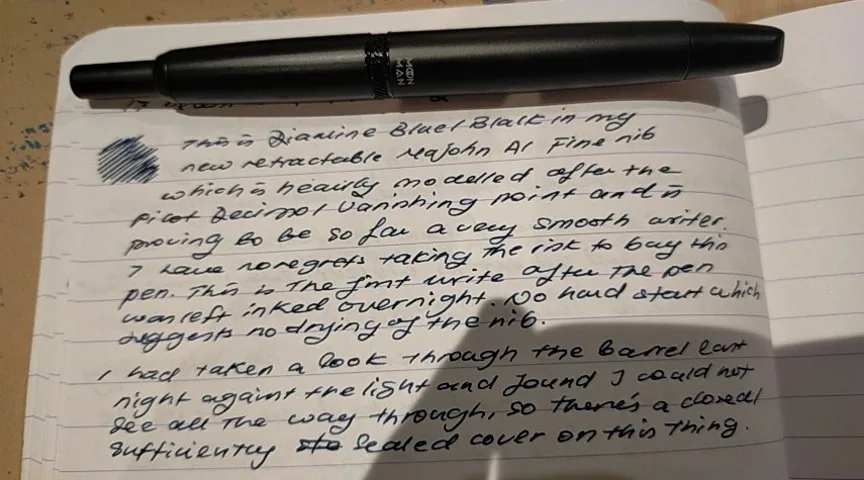 MOON
MAN
This is Diamine Blue/Black in my
new retractable Majohn A1 Fine nib
which is heavily modelled after the
Pilot Decimo/Vanishing Point and is
proving to be so far a very smooth writer.
I have no regrets taking the risk to buy this
pen. This is the first write after the pen
was left inked overnight. No hard start which
suggests no drying of the nib.
I had taken a look through the barrel last
night against the light and found I could not
see all the way through, so there's a closed/
sufficiently sealed cover on this thing.